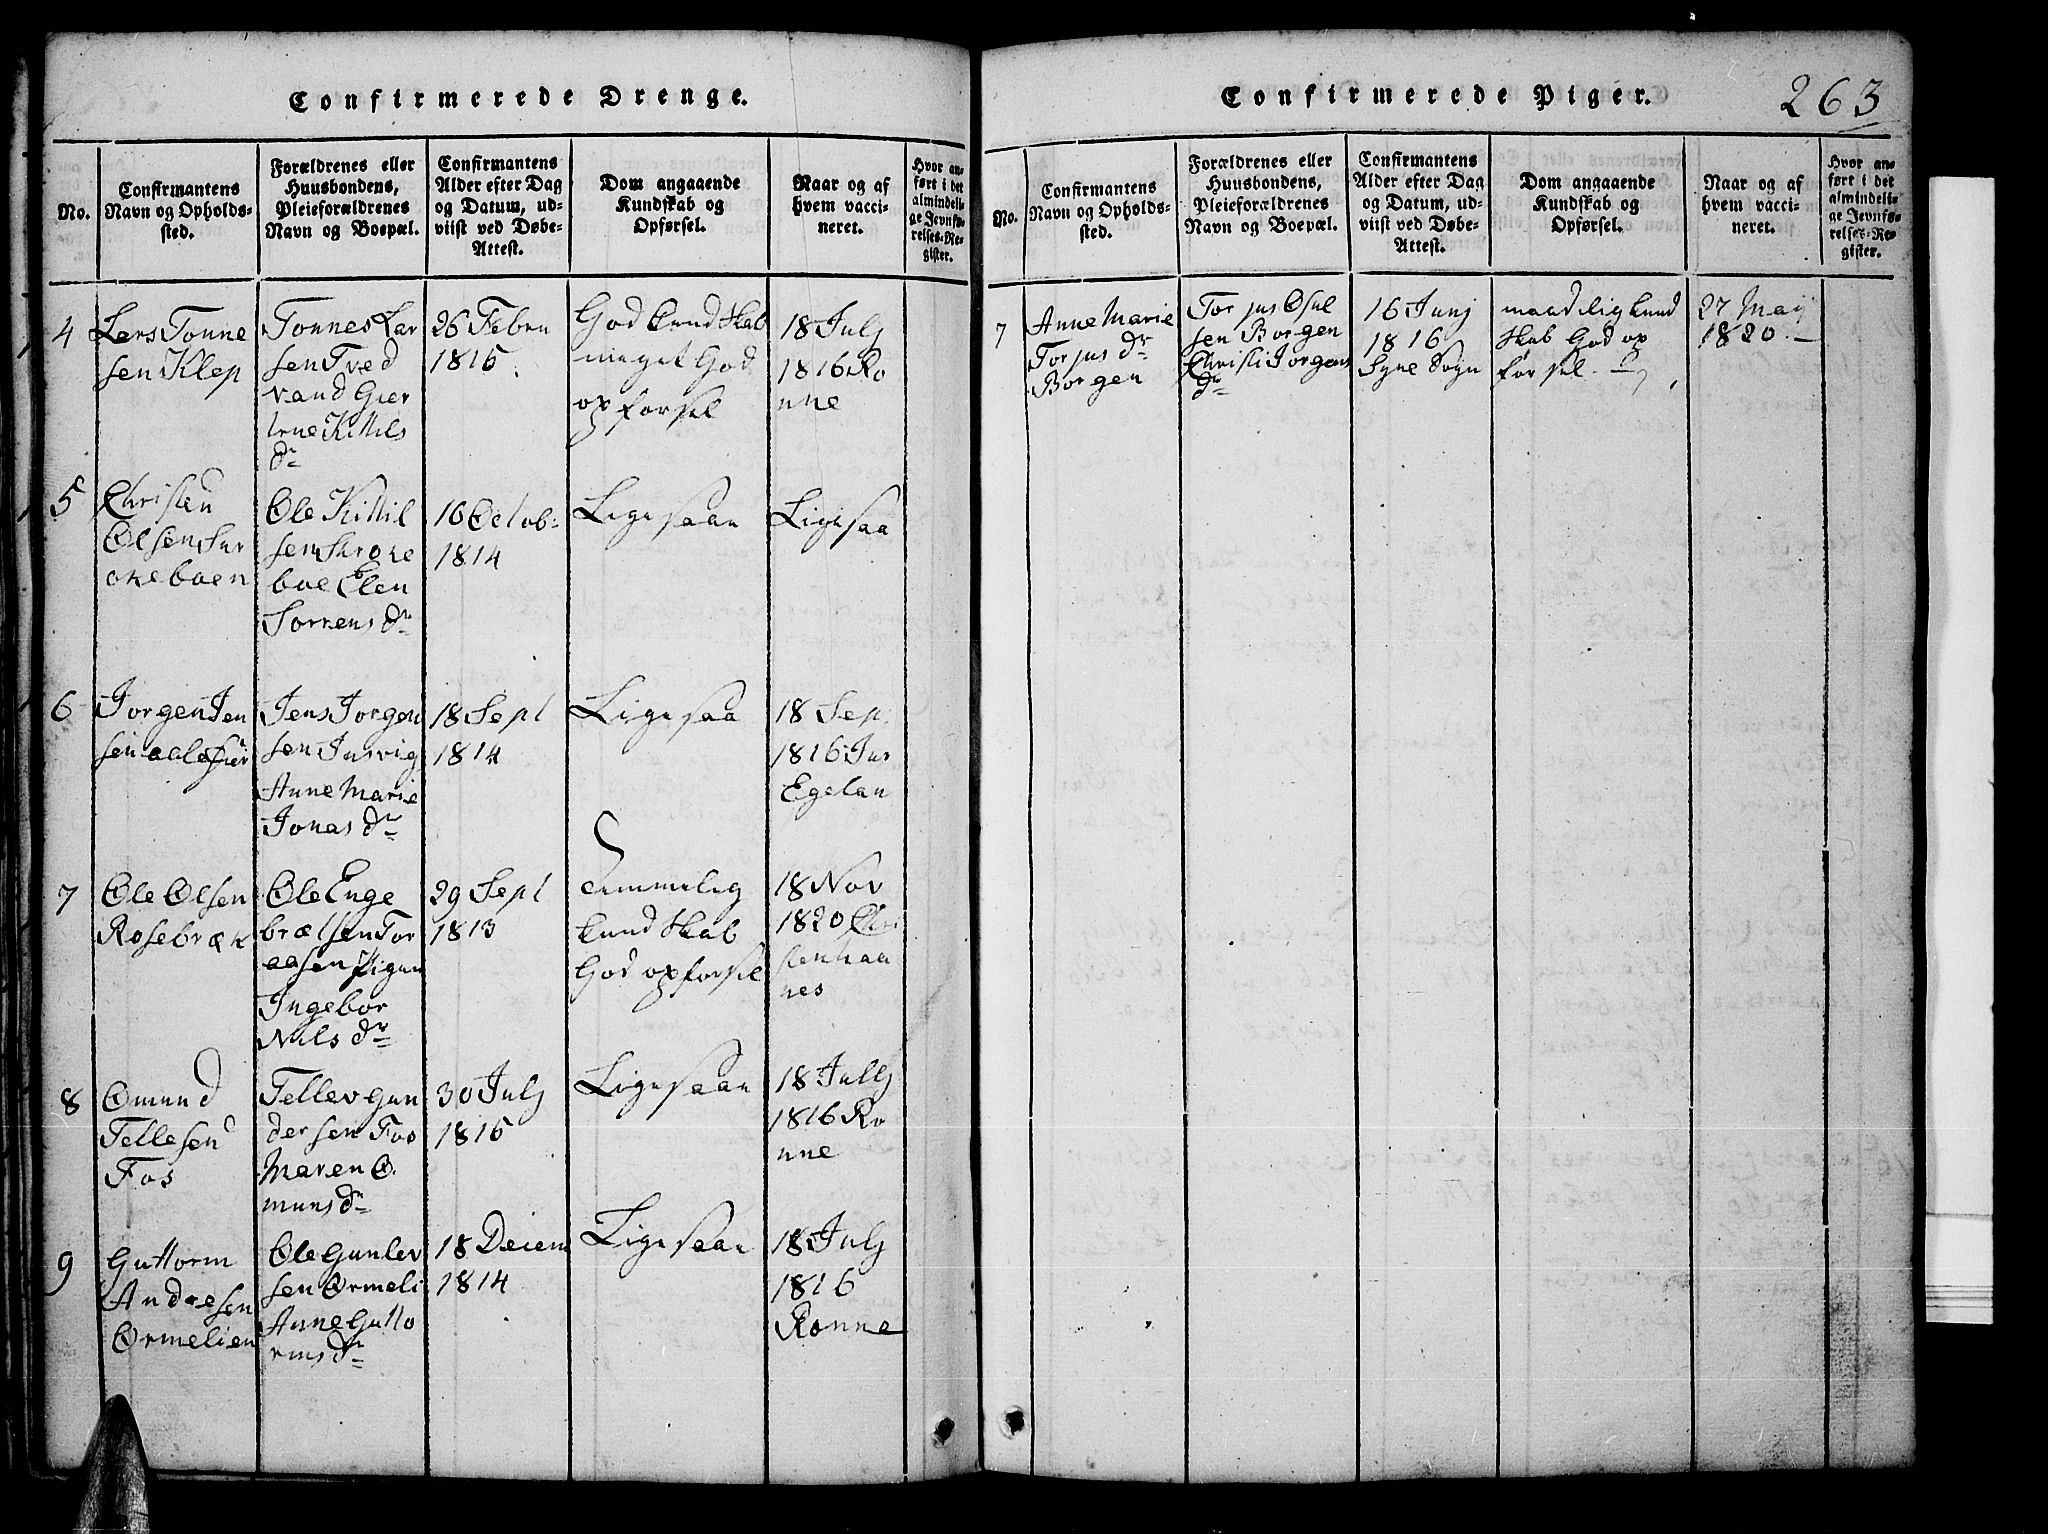 Confirmerede Drenge.
No.
Confirmantens
Navn og Opholds-
sted.
Forældrenes eller
Huusbondens,
Pleieforældrenes
Navn og Boepæl.
Confirmantens
Alder efter Dag
og Datum, ud-
viist ved Døbe-
Attest.
Dom angaaende
Kundskab og
Opførsel.
Naar og af
hvem vacci-
neret.
Hvor an-
ført i det
almindeli-
ge Jevnfø-
relses-Re-
gister.
4
Lars Tonne
sen Klep
Tonnes Lar
sen Tved
vand Gier
trne Kittils
dr
26 Febru
1815
God kundskab
meget God
opforsel
18 Julj
1816 Ro
nne
5
Christen
Olsen
Ole Kittil
sen
boe Elen
Sorrens dr
16 Octob:
1814
Ligesaae
Ligesaa
6
Jorgen Jen
sen
Jens Jorgen
sen
Anne Marie
Jonas dr
18 Sept
1814
Ligesaa
18 Sep.
1816 Jur
Egelan
7
Ole Olsen
Rosebræk
Ole Enge
brætsen Tor
aasen Pigen
Ingebor
Nils dr
29 Sept
1813
Temmelig
kundskab
God opforsel
18 Nov
1820
nes
8
Omund
Tellesen
Fos
Tellev Gun
dersen Fos
Maren O
muns dr
30 Julj
1815
Ligesaae
18 Jullj
1816 Ro
nne
9
Guttorm
Andresen
Ormelien
Ole Gunlev
sen Ormeli
Anne Gutto
rms dr
18 Decem
1814
Ligesaae
18 Julj
1816
Ronne
Confirmerede Piger.
263
No.
Confirmantens
Navn og Opholds-
sted.
Forældrenes eller
Huusbondens,
Pleieforældrenes
Navn og Boepæl.
Confirmantens
Alder efter Dag
og Datum, ud-
viist ved Døbe-
Attest.
Dom angaaende
Kundskab og
Opførsel.
Naar og af
hvem vacci-
neret.
Hvor an-
ført i det
almindeli-
ge Jevnfø-
relses-Re-
gister.
7
Anne Marie
Torjus dr
Borgen
Torjus Osul
sen Borgen
Christi Jorgens
dr
16 Junj
1816
Sogn
maadelig kund
skab God op
forsel
27 Maij
1820.